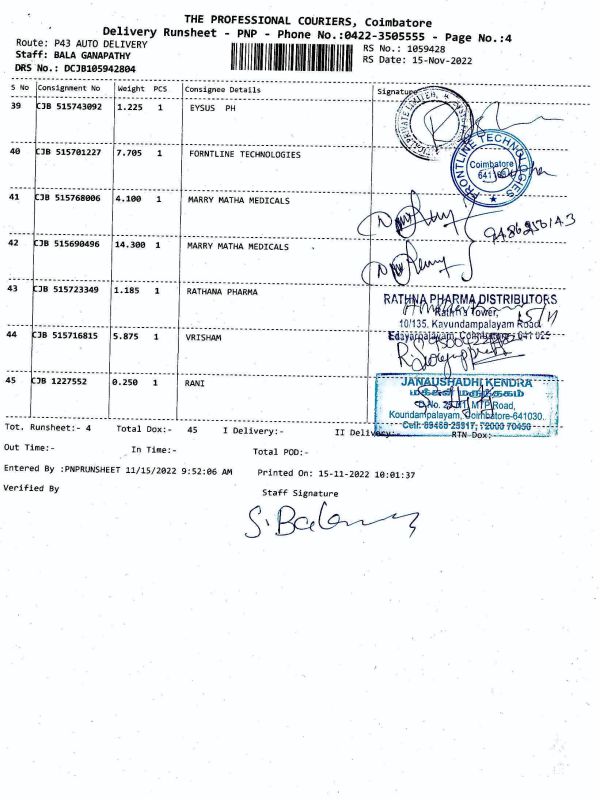 THE PROFESSIONAL COURIERS, Coimbatore
Delivery Runsheet - PNP - Phone No.:0422-3505555 - Page No.:4
Route: P43 AUTO DELIVERY
RS No.: 1059428
Staff: BALA GANAPATHY
RS Date: 15-Nov-2022
DRS No.: DCJB105942804
S No Consignment No Weight PCS Consignee Details Signature
39 CJB 515743092 1.225 1 EYSUS PH
40 CJB 515701227 7.705 1 FORNTLINE TECHNOLOGIES
FRONTLINE TECHNOLOGIES
Coimbatore
41 CJB 515768006 4.100 1 MARRY MATHA MEDICALS
42 CJB 515690496 14.300 1 MARRY MATHA MEDICALS
43 CJB 515723349 1.185 1 RATHANA PHARMA
RATHNA PHARMA DISTRIBUTORS
Rathna Tower,
10/135, Kavundampalayam Road
Edayarpalayam, Coimbatore - 641 025
15/11
44 CJB 515716815 5.875 1 VRISHAM
45 CJB 1227552 0.250 1 RANI
JANAUSHADHI KENDRA
மக்கள் மருந்தகம்
MTP Road,
Koundampalayam, Coimbatore-641030.
Tot. Runsheet:- 4 Total Dox:- 45 I Delivery:- II Delivery:- RTN Dox:-
Out Time:- In Time:- Total POD:-
Entered By :PNPRUNSHEET 11/15/2022 9:52:06 AM Printed On: 15-11-2022 10:01:37
Verified By Staff Signature